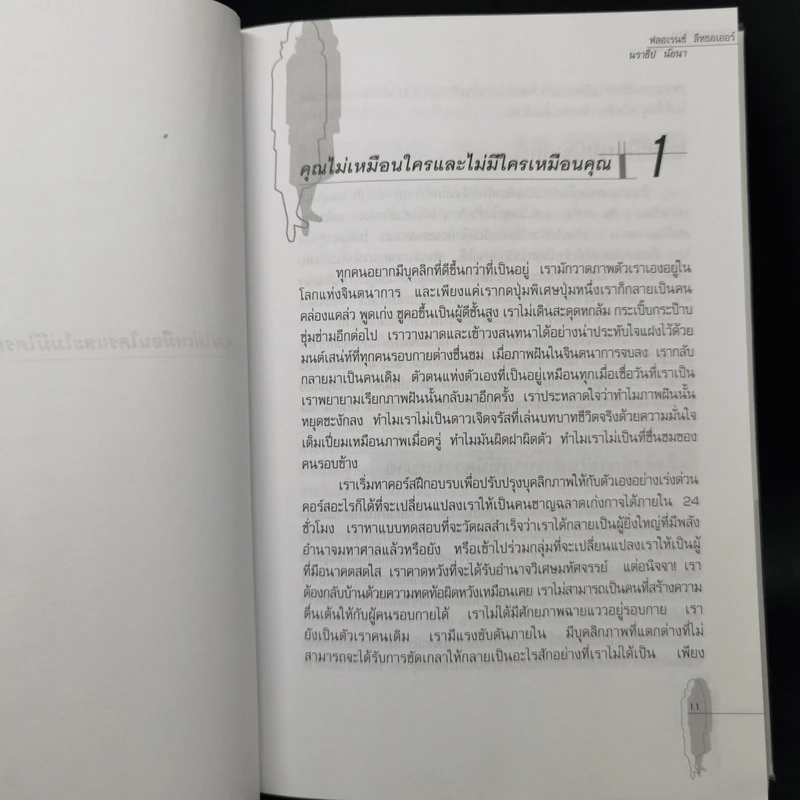 ฟลอเรนซ์ ลิทธอเออร์
นราธิป นัยนา
คุณไม่เหมือนใครและไม่มีใครเหมือนคุณ 1
ทุกคนอยากมีบุคลิกที่ดีขึ้นกว่าที่เป็นอยู่ เรามักวาดภาพตัวเราเองอยู่ใน
โลกแห่งจินตนาการ และเพียงแค่เรากดปุ่มพิเศษปุ่มหนึ่งเราก็กลายเป็นคน
คล่องแคล่ว พูดเก่ง ชูคอขึ้นเป็นผู้ดีชั้นสูง เราไม่เดินสะดุดหกล้ม กระเปิ๊บกระป๊าบ
ซุ่มซ่ามอีกต่อไป เราวางมาดและเข้าวงสนทนาได้อย่างน่าประทับใจแฝงไว้ด้วย
มนต์เสน่ห์ที่ทุกคนรอบกายต่างชื่นชม เมื่อภาพฝันในจินตนาการจบลง เรากลับ
กลายมาเป็นคนเดิม ตัวตนแห่งตัวเองที่เป็นอยู่เหมือนทุกเมื่อเชื่อวันที่เราเป็น
เราพยายามเรียกภาพฝันนั้นกลับมาอีกครั้ง เราประหลาดใจว่าทำไมภาพฝันนั้น
หยุดชะงักลง ทำไมเราไม่เป็นดาวเจิดจรัสที่เล่นบทบาทชีวิตจริงด้วยความมั่นใจ
เต็มเปี่ยมเหมือนภาพเมื่อครู่ ทำไมมันผิดฝาผิดตัว ทำไมเราไม่เป็นที่ชื่นชมของ
คนรอบข้าง
เราเริ่มหาคอร์สฝึกอบรมเพื่อปรับปรุงบุคลิกภาพให้กับตัวเองอย่างเร่งด่วน
คอร์สอะไรก็ได้ที่จะเปลี่ยนแปลงเราให้เป็นคนชาญฉลาดเก่งกาจได้ภายใน 24
ชั่วโมง เราหาแบบทดสอบที่จะวัดผลสำเร็จว่าเราได้กลายเป็นผู้ยิ่งใหญ่ที่มีพลัง
อำนาจมหาศาลแล้วหรือยัง หรือเข้าไปร่วมกลุ่มที่จะเปลี่ยนแปลงเราให้เป็นผู้
ที่มีอนาคตสดใส เราคาดหวังที่จะได้รับอำนาจวิเศษมหัศจรรย์ แต่อนิจจา! เรา
ต้องกลับบ้านด้วยความทดท้อผิดหวังเหมือนเคย เราไม่สามารถเป็นคนที่สร้างความ
ตื่นเต้นให้กับผู้คนรอบกายได้ เราไม่ได้มีศักยภาพฉายแววอยู่รอบกาย เรา
ยังเป็นตัวเราคนเดิม เรามีแรงขับดันภายใน มีบุคลิกภาพที่แตกต่างที่ไม่
สามารถจะได้รับการขัดเกลาให้กลายเป็นอะไรสักอย่างที่เราไม่ได้เป็น เพียง
11